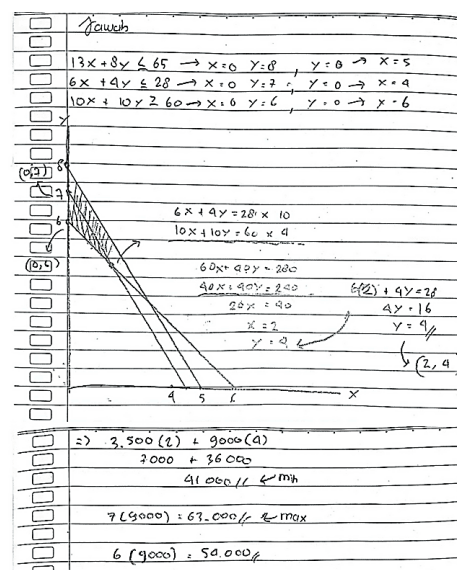 Jawab
13x + 8y ≤ 65 → x=0 y=8 , y=0 → x=5
6x + 4y ≤ 28 → x=0 y=7 , y=0 → x=4
10x + 10y ≥ 60 → x=0 y=6 , y=0 → x=6
y
8
(0,7)
7
6
6x + 4y = 28 x 10
10x + 10y = 60 x 4
60x + 40y = 280
40x + 40y = 240
20x = 40
x = 2
y = 4
6(2) + 4y = 28
4y = 16
y = 4 //
(2, 4
4 5 6 x
=) 3.500 (2) + 9000 (4)
7000 + 36000
41 000 // ← min
7 (9000) = 63.000 // ← max
6 (9000) = 54.000 //